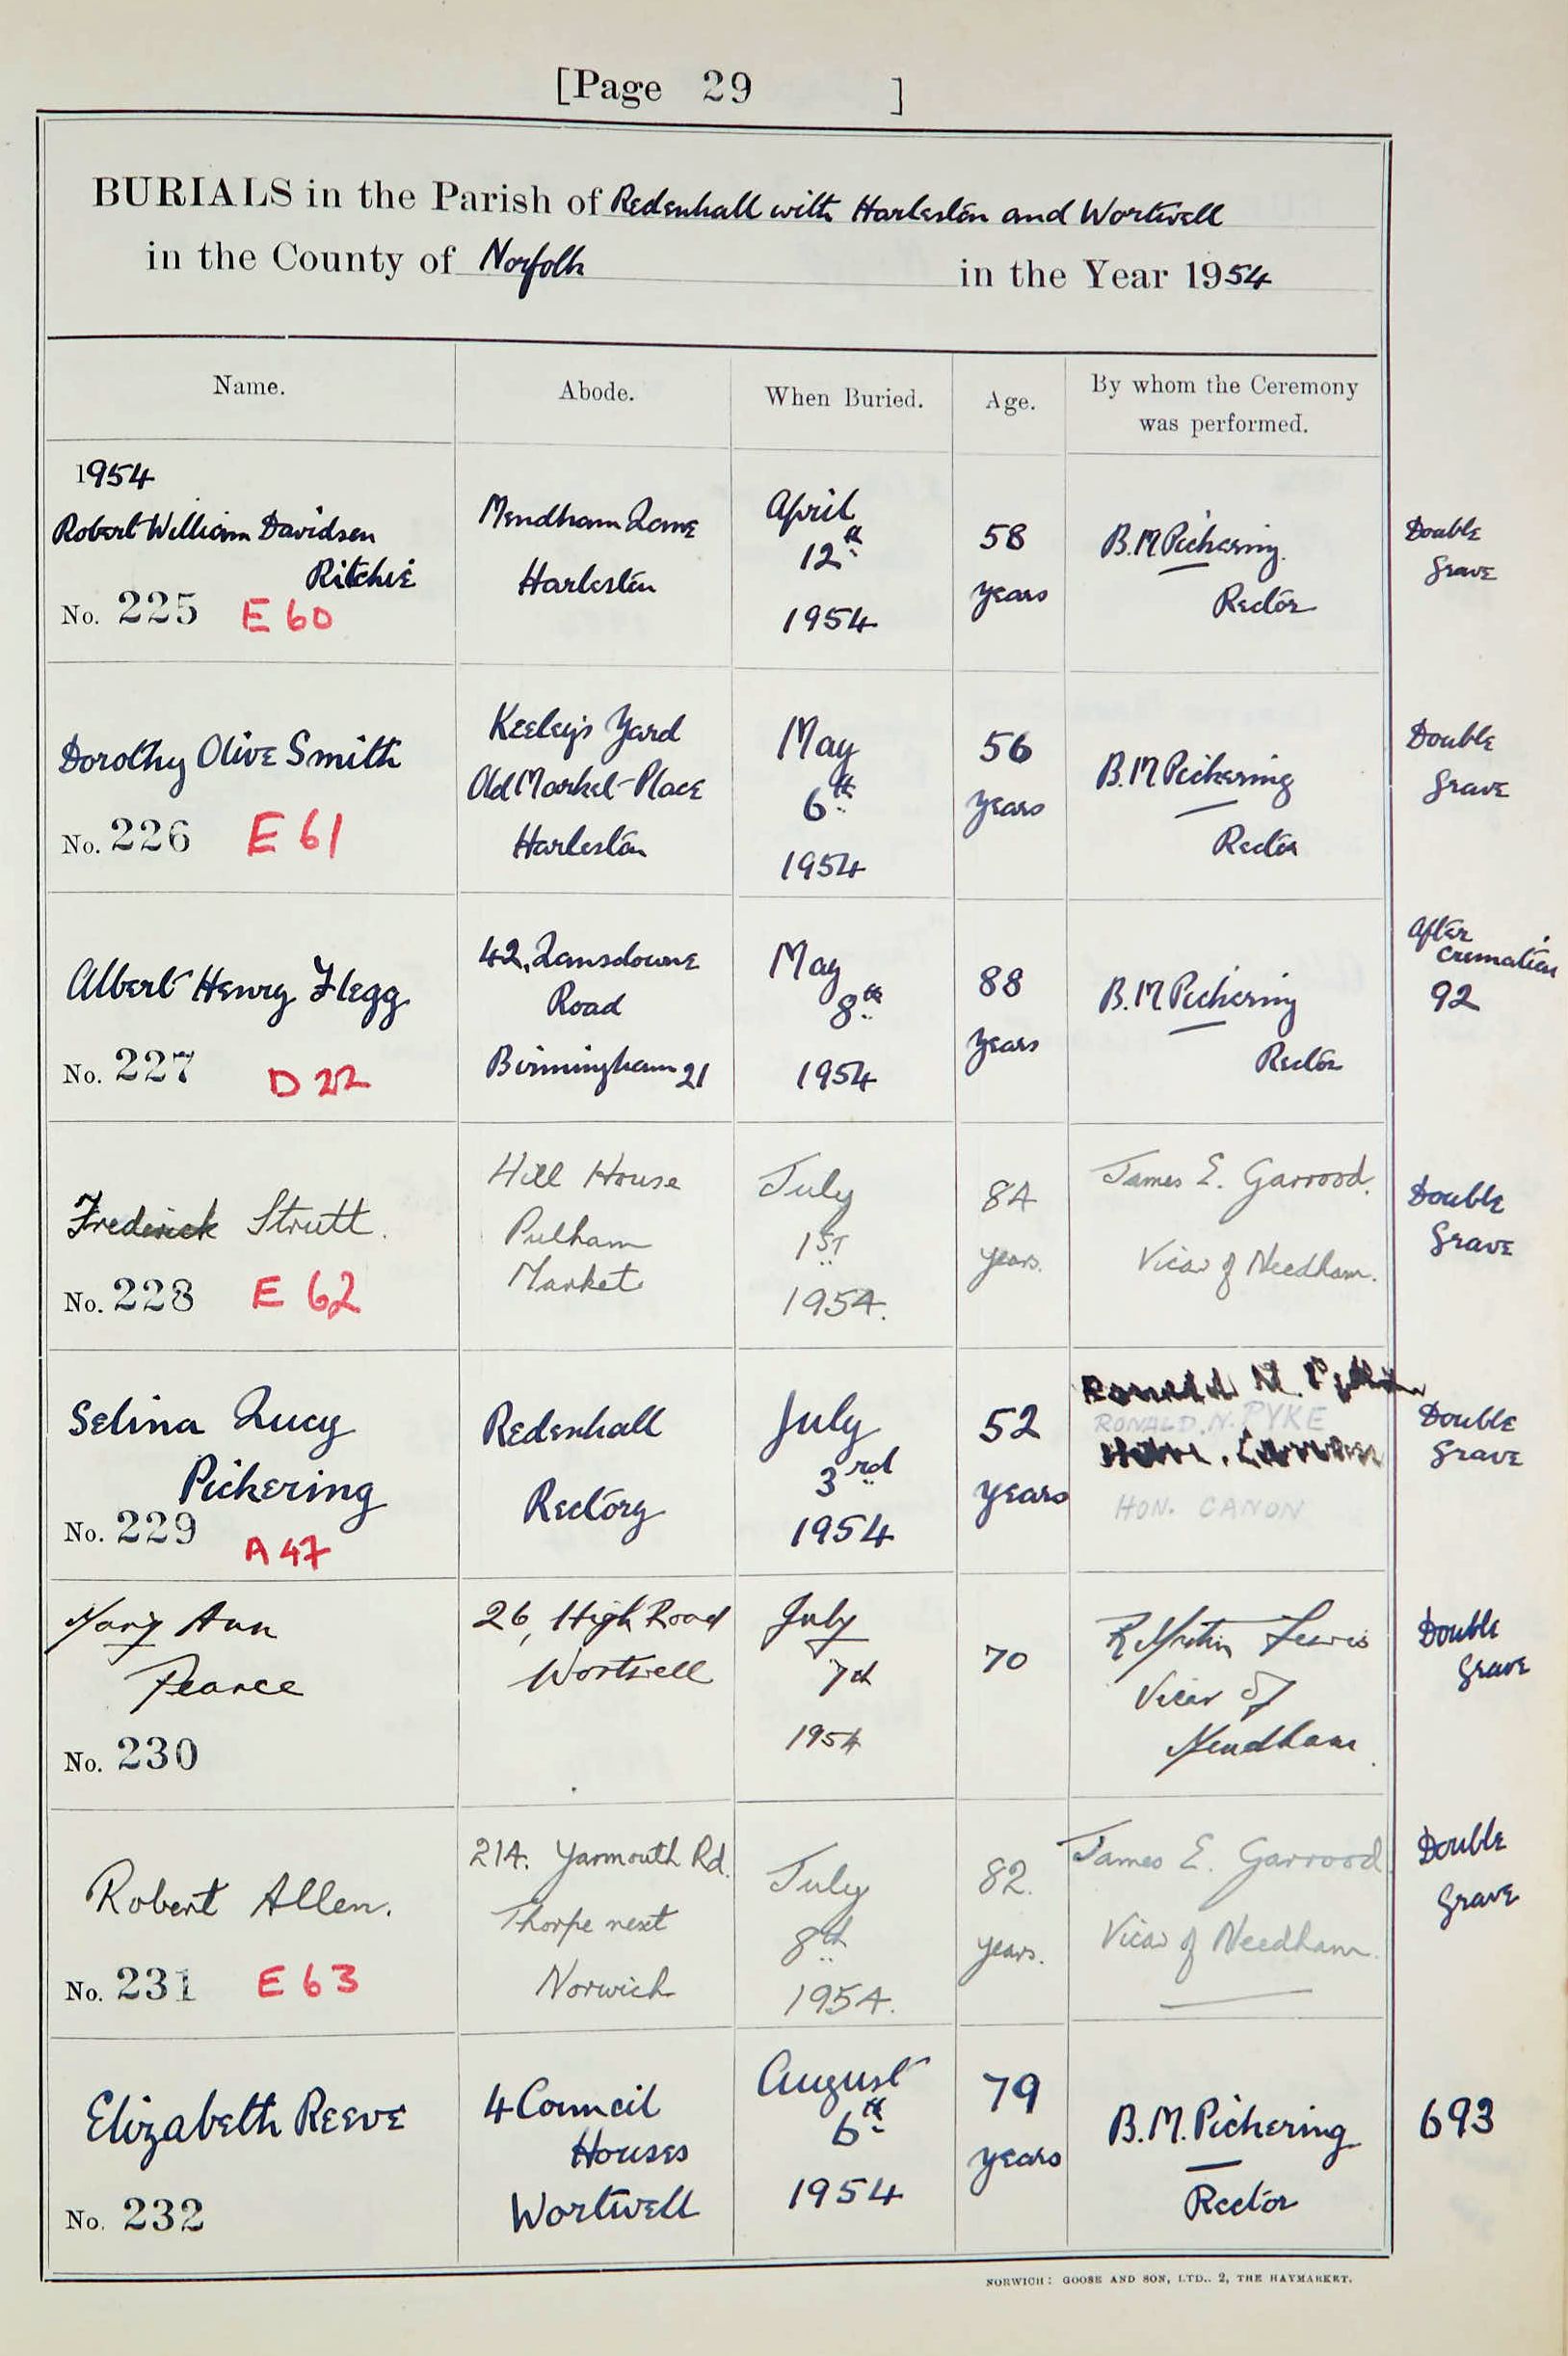 [Page 29 ]
BURIALS in the Parish of Redenhall with Harleston and Wortwell
in the County of Norfolk in the Year 1954
Name. Abode. When Buried. Age. By whom the Ceremony was performed.
1954
Robert William Davidson
Ritchie
No. 225 E 60
Mendham Lane
Harleston
April
12th
1954
58
years
B.M. Pickering.
Rector
Double
Grave
Dorothy Olive Smith
No. 226 E 61
Keeley's Yard
Old Market-Place
Harleston
May
6th
1954
56
years
B.M. Pickering
Rector
Double
Grave
Albert Henry Flegg
No. 227 D 22
42, Lansdowne
Road
Birmingham 21
May
8th
1954
88
years
B.M. Pickering
Rector
After
cremation
92
Frederick Strutt.
No. 228 E 62
Hill House
Pulham
Market
July
1ST
1954.
84
years.
James E. Garrood.
Vicar of Needham.
Double
Grave
Selina Lucy
Pickering
No. 229 A 47
Redenhall
Rectory
July
3rd
1954
52
years
Ronald N.
RONALD. N. PYKE
Hon. Canon
HON. CANON
Double
Grave
Mary Ann
Pearce
No. 230
26, High Road
Wortwell
July
7th
1954
70
Lewis
Vicar of
Mendham.
Double
Grave
Robert Allen.
No. 231 E 63
214. Yarmouth Rd.
Thorpe next
Norwich
July
8th
1954.
82.
years.
James E. Garrood
Vicar of Needham.
Double
Grave
Elizabeth Reeve
No. 232
4 Council
Houses
Wortwell
August
6th
1954
79
years
B.M. Pickering
Rector
693
NORWICH: GOOSE AND SON, LTD., 2, THE HAYMARKET.